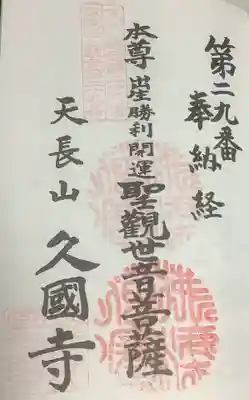 第二九番
奉納経
本尊 勝利開運 聖觀世音菩薩
天長山 久國寺